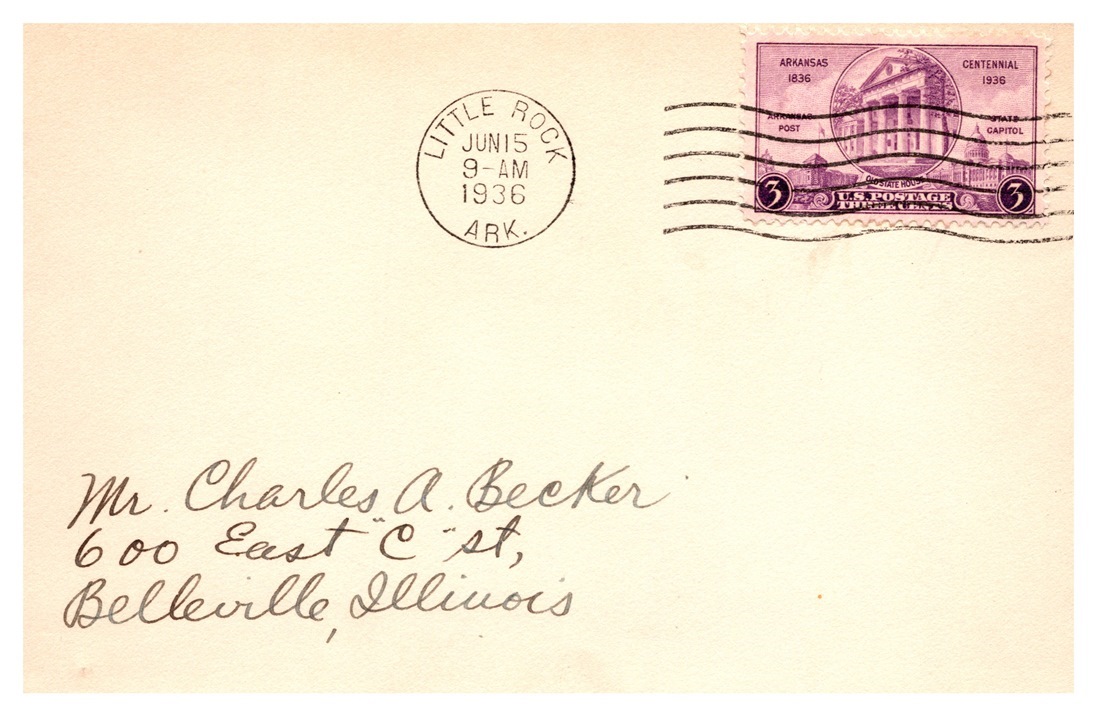 ARKANSAS
1836
CENTENNIAL
1936
ARKANSAS
POST
STATE
CAPITOL
OLD STATE HOUSE
3
U.S. POSTAGE
THREE CENTS
3
LITTLE ROCK
JUN 15
9-AM
1936
ARK.
Mr. Charles A. Becker
600 East "C" St,
Belleville, Illinois